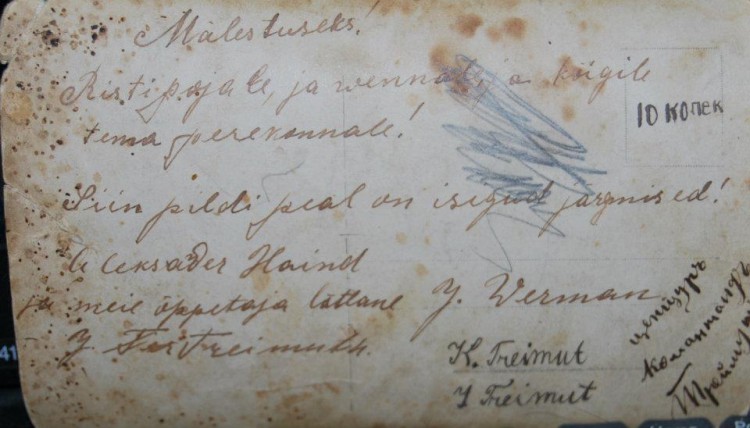 Mälestuseks!
Ristipojale, ja wennale, ja kõigile
tema perekonnale!
10 копек
Siin pildi peal on isegud järgmised!
Aleksader Haind
ja meie õppetaja lätlane J. Werman
J. Treimuth.
K. Treimut
J Treimut
цензуръ
комантандъ